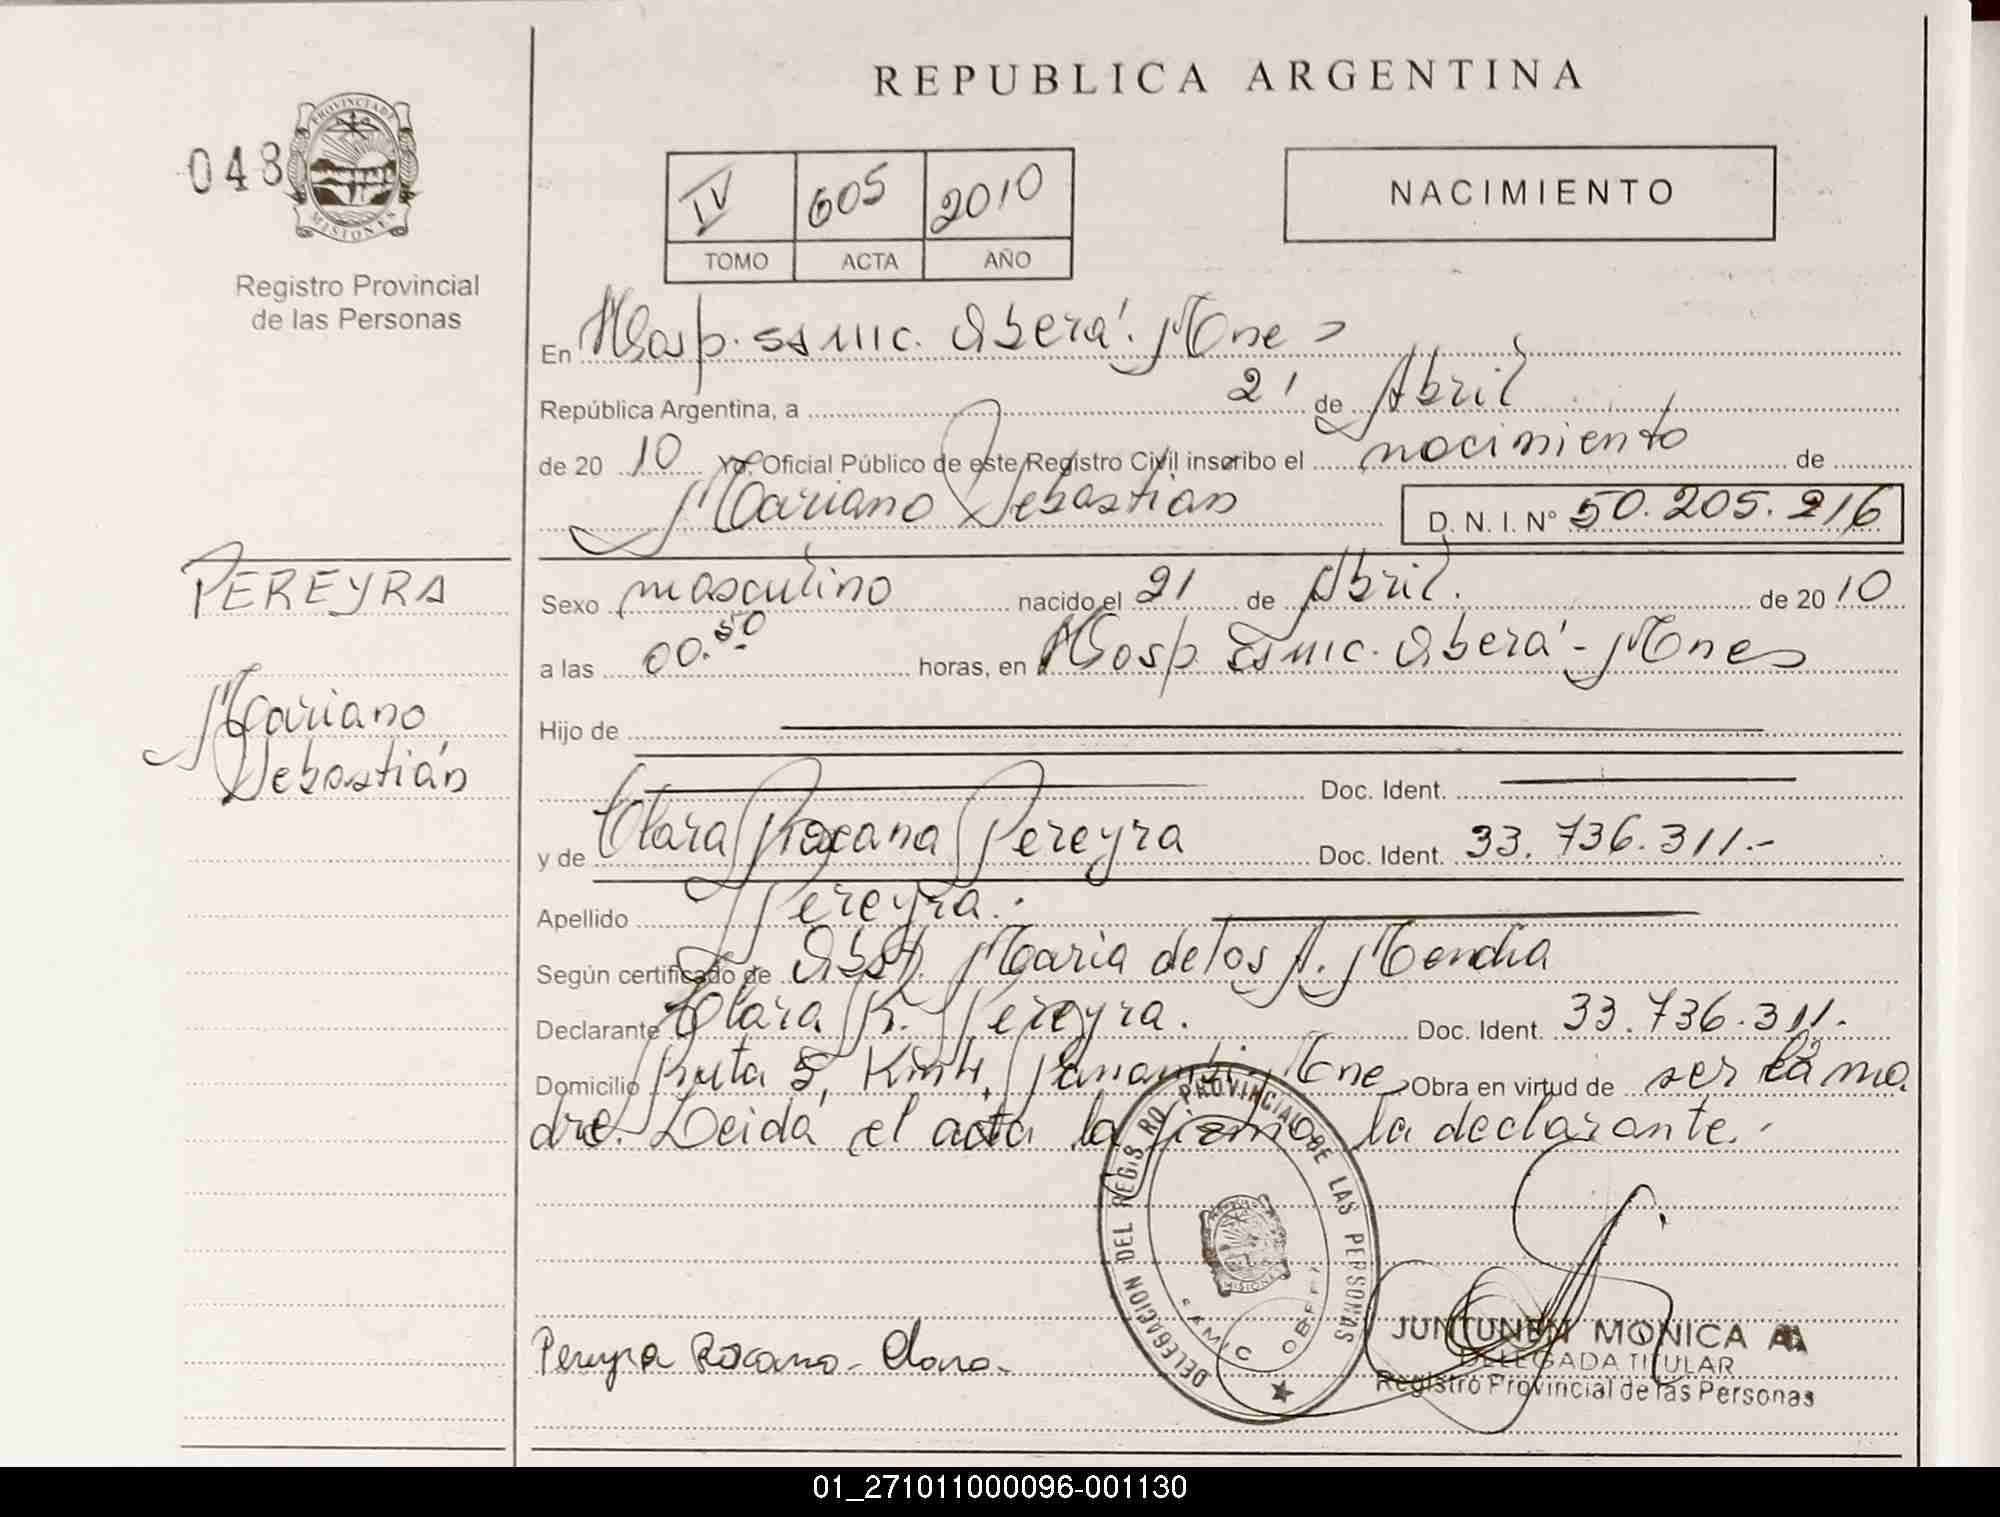 REPUBLICA ARGENTINA
048
PROVINCIA DE
MISIONES
Registro Provincial
de las Personas
IV 605 2010
TOMO ACTA AÑO
NACIMIENTO
En Hosp. SAMIC. Oberá. Mnes
República Argentina, a 21 de Abril
de 20 10 Yo. Oficial Público de este Registro Civil inscribo el nacimiento de
Mariano Sebastian D. N. I. N° 50.205.216
PEREYRA
Mariano
Sebastián
Sexo masculino nacido el 21 de Abril. de 20 10
a las 00.50 horas, en Hosp. SAMIC. Oberá - Mnes
Hijo de
Doc. Ident.
y de Clara Roxana Pereyra Doc. Ident. 33.736.311.-
Apellido Pereyra.
Según certificado de Obst. Maria de los A. Mendia
Declarante Clara R. Pereyra. Doc. Ident. 33.736.311.
Domicilio Ruta 5, Km 4, Panambi, Mne Obra en virtud de ser la ma
dre. Leida el acta la firma la declarante.
DELEGACION DEL REGISTRO PROVINCIAL DE LAS PERSONAS
MISIONES
SAMIC OBERA
Pereyra Roxana - Clara -
JUNTUNEN MONICA A
DELEGADA TITULAR
Registro Provincial de las Personas
01_271011000096-001130